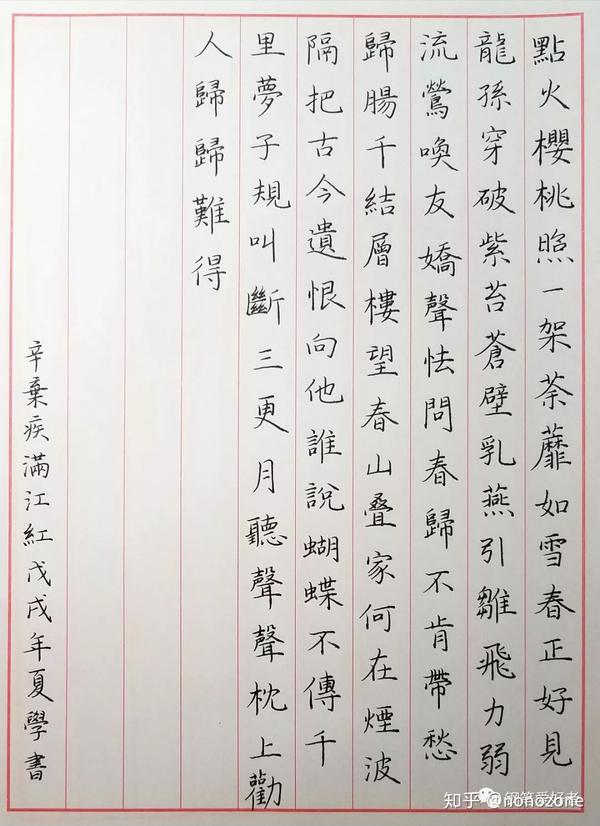 點火櫻桃照一架荼蘼如雪春正好見
龍孫穿破紫苔蒼壁乳燕引雛飛力弱
流鶯喚友嬌聲怯問春歸不肯帶愁
歸腸千結層樓望春山疊家何在煙波
隔把古今遺恨向他誰說蝴蝶不傳千
里夢子規叫斷三更月聽聲聲枕上勸
人歸歸難得
辛棄疾滿江紅戊戌年夏學書
钢笔爱好者
知乎 @nonozone